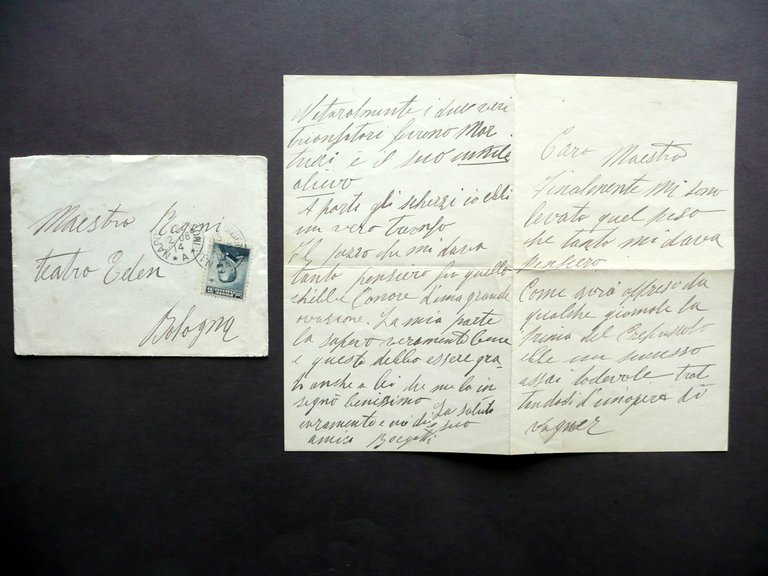 Maestro Regoni
teatro Eden
Bologna
NAPOLI
Caro Maestro
Finalmente mi sono
levato quel peso
che tanto mi dava
pensiero
Come avrà appreso da
qualche giornale la
prima del Crepuscolo
elle un successo
assai lodevole trat
tandosi d'un'opera di
Vagner
Naturalmente i due veri
trionfatori furono Mar
tucci e il suo umile
alievo
A parte gli scherzi io ebbi
un vero trionfo
Il pezzo che mi dava
tanto pensiero fu quello
ch'ebbe l'onore d'una grande
ovazione. La mia parte
la sapevo veramente bene
e questo debbo essere gra
to anche a lei che me la in
segnò benissimo
La saluto
caramente e mi dica suo
amico Borgatti